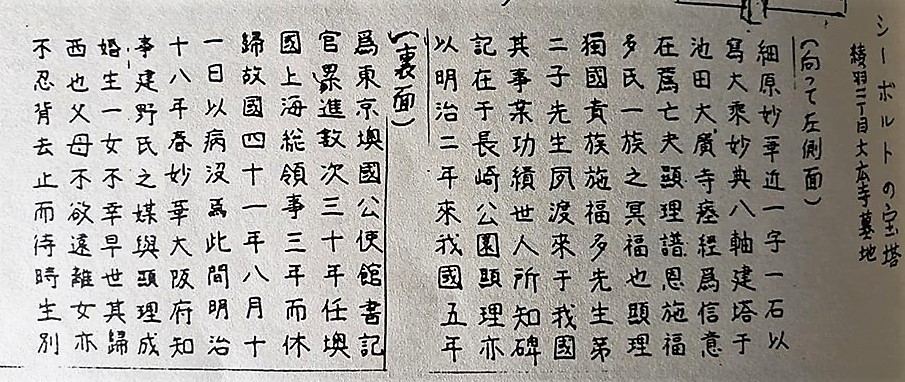 シーボルトの宝塔
綾羽二丁目大本寺墓地
(向って左側面)
細原妙華近一字一石以
寫大乘妙典八軸建塔于
池田大廣寺瘞経爲信意
在爲亡夫顯理譜恩施福
多氏一族之冥福也顯理
獨國貴族施福多先生第
二子先生夙渡來于我國
其事業功績世人所知碑
記在于長崎公園顯理亦
以明治二年來我國五年
(裏面)
爲東京墺國公使館書記
官累進数次三十年任墺
國上海総領事三年而休
歸故國四十一年八月十
一日以病沒爲此間明治
十八年春妙華大阪府知
事建野氏之媒與顯理成
婚生一女不幸早世其歸
西也父母不欲遠離女亦
不忍背去止而待時生別